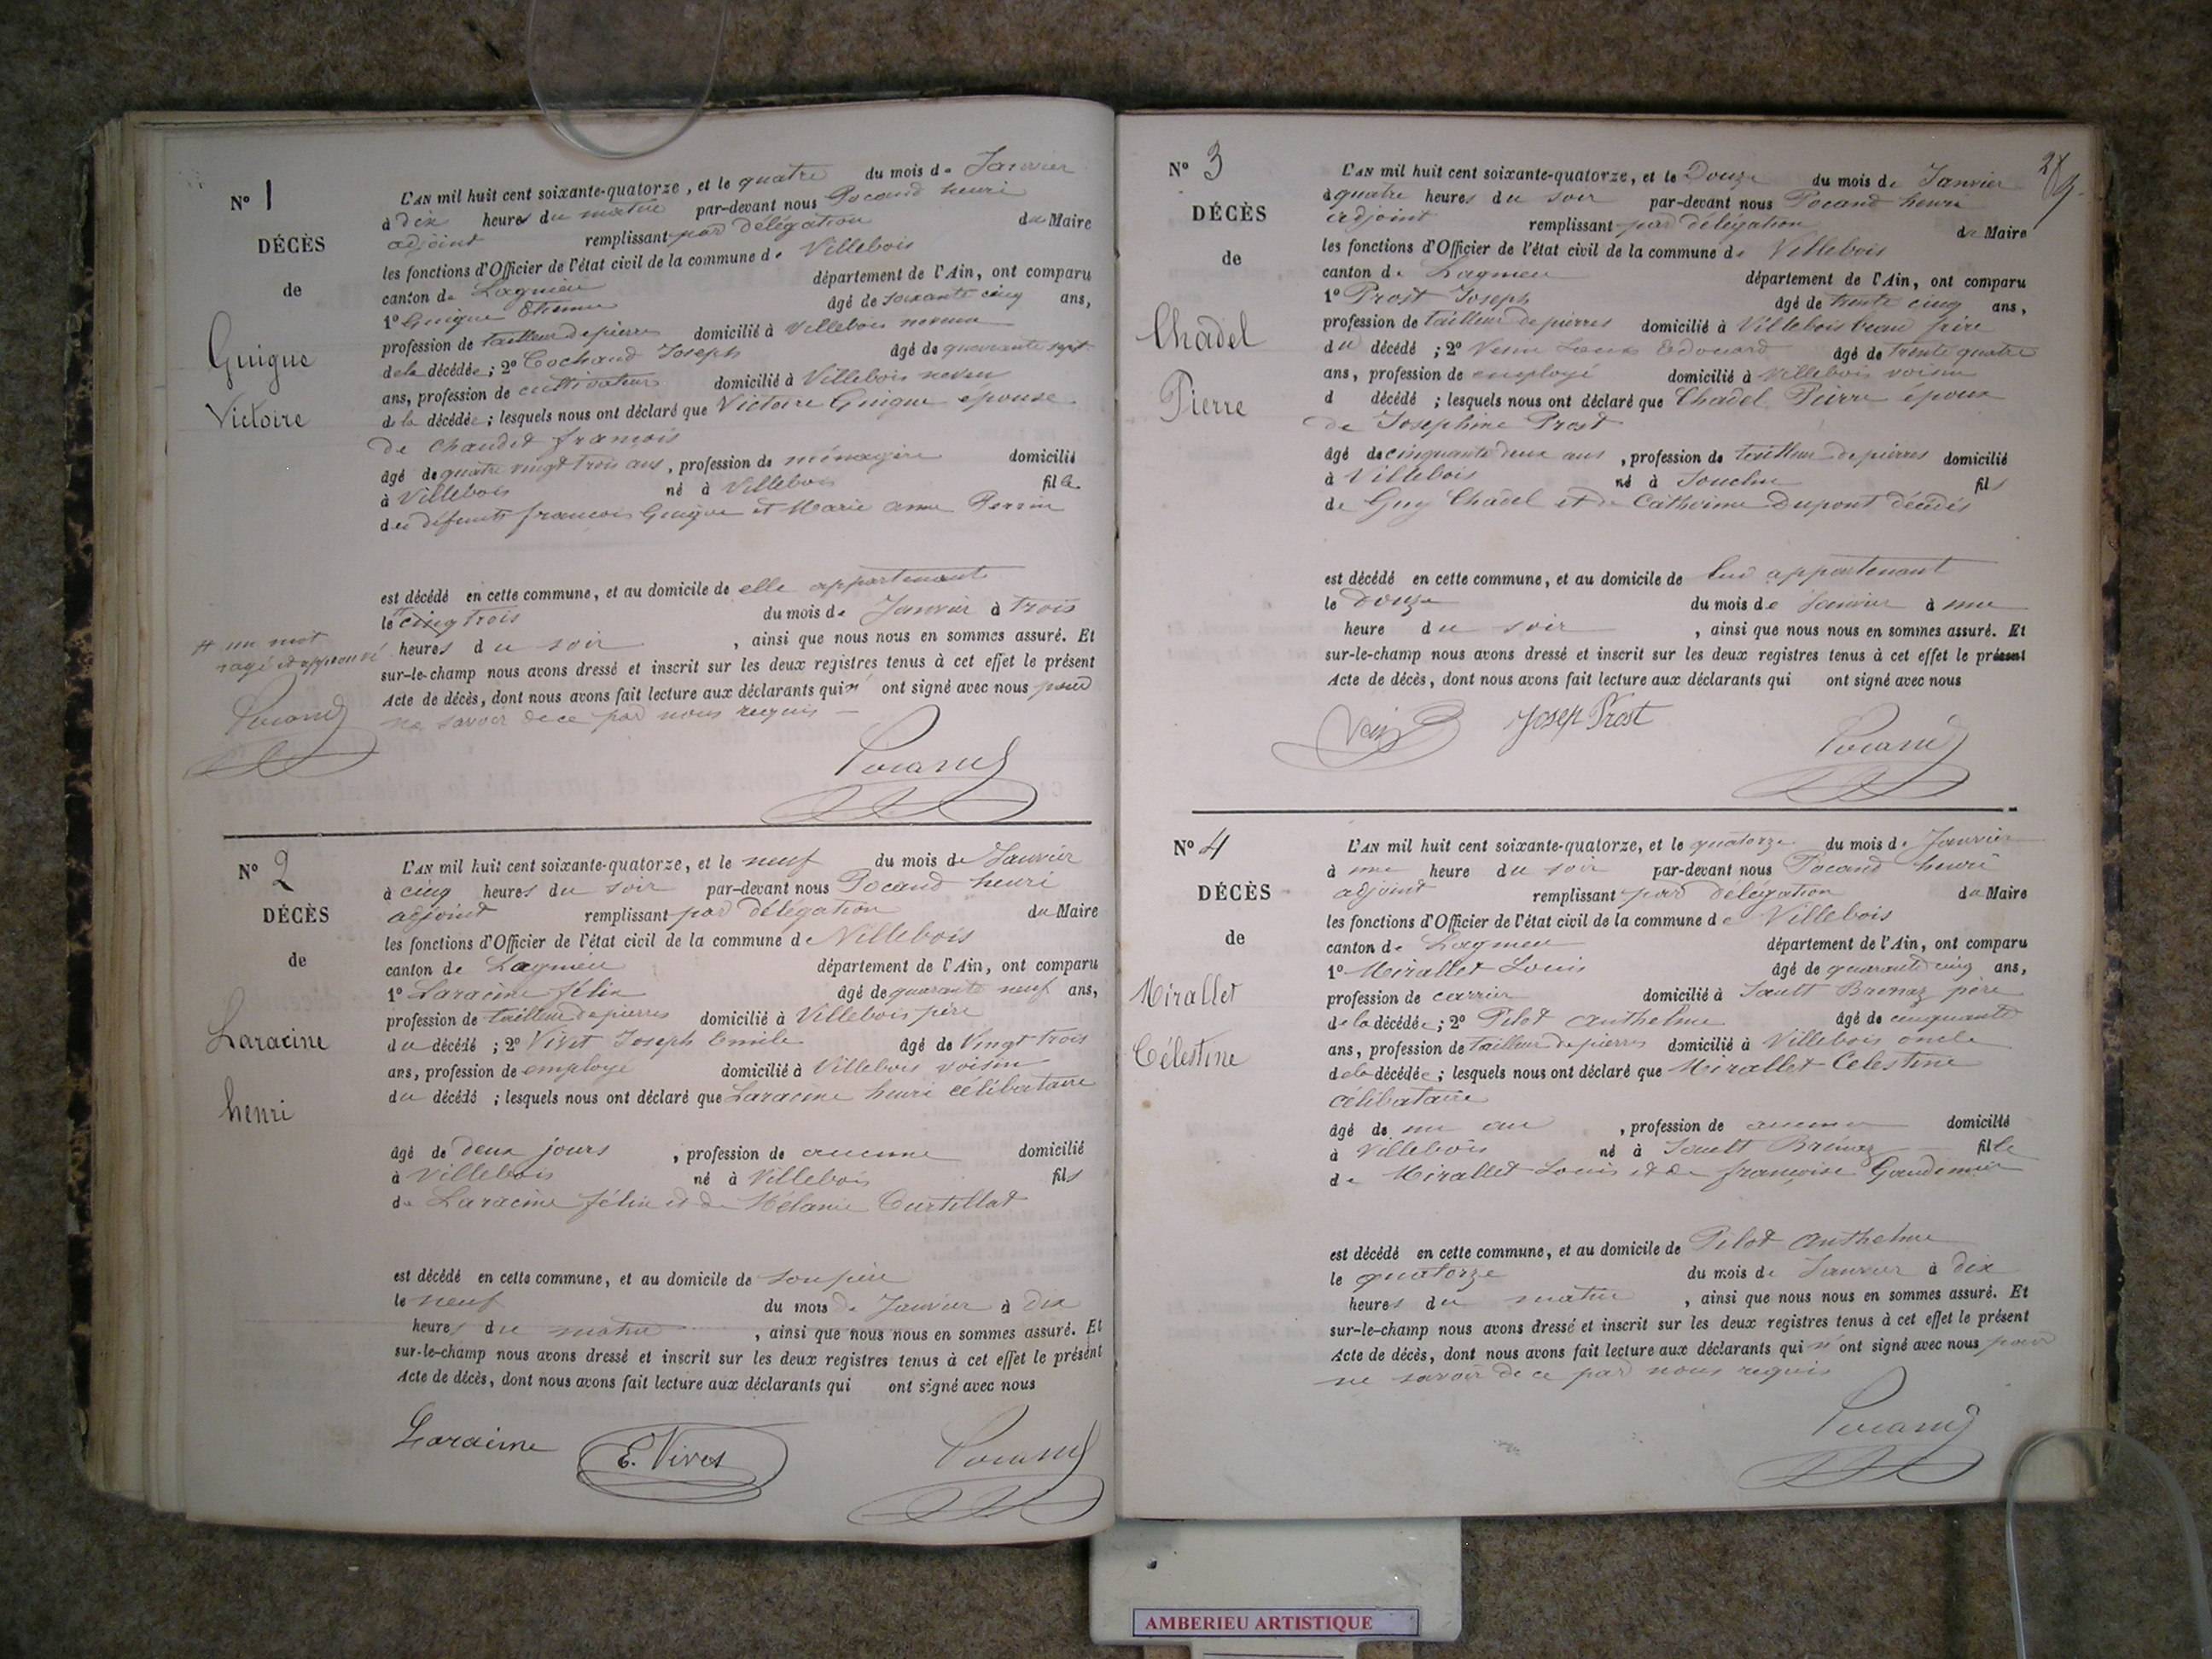 N° 1
DÉCÈS
de
Guigue
Victoire
L'AN mil huit cent soixante-quatorze, et le quatre du mois de Janvier
à dix heures du matin par-devant nous Pocand henri
adjoint remplissant par délégation du Maire
les fonctions d'Officier de l'état civil de la commune de Villebois
canton de Lagnieu département de l'Ain, ont comparu
1° Guigue Etienne âgé de soixante cinq ans,
profession de tailleur de pierres domicilié à Villebois neveu
de la décédée; 2° Cochand Joseph âgé de quarante sept
ans, profession de cultivateur domicilié à Villebois neveu
de la décédée; lesquels nous ont déclaré que Victoire Guigue épouse
de Chaudet françois
âgé de quatre vingt trois ans, profession de ménagère domicilié
à Villebois né à Villebois fille
des défunts françois Guigue et Marie anne Perrin
est décédé en cette commune, et au domicile de elle appartenant
le cinq trois du mois de Janvier à trois
# un mot
rayé et approuvé
Pocand
heures du soir, ainsi que nous nous en sommes assuré. Et
sur-le-champ nous avons dressé et inscrit sur les deux registres tenus à cet effet le présent
Acte de décès, dont nous avons fait lecture aux déclarants qui n' ont signé avec nous pour
ne savoir de ce par nous requis
Pocand
N° 2
DÉCÈS
de
Laracine
henri
L'AN mil huit cent soixante-quatorze, et le neuf du mois de Janvier
à cinq heures du soir par-devant nous Pocand henri
adjoint remplissant par délégation du Maire
les fonctions d'Officier de l'état civil de la commune de Villebois
canton de Lagnieu département de l'Ain, ont comparu
1° Laracine félix âgé de quarante neuf ans,
profession de tailleur de pierres domicilié à Villebois père
du décédé; 2° Vivet Joseph Emile âgé de Vingt trois
ans, profession de employé domicilié à Villebois voisin
du décédé; lesquels nous ont déclaré que Laracine henri célibataire
âgé de deux jours, profession de aucune domicilié
à Villebois né à Villebois fils
de Laracine félix et de Mélanie Curtillat
est décédé en cette commune, et au domicile de son père
le neuf du mois de Janvier à dix
heures du matin, ainsi que nous nous en sommes assuré. Et
sur-le-champ nous avons dressé et inscrit sur les deux registres tenus à cet effet le présent
Acte de décès, dont nous avons fait lecture aux déclarants qui ont signé avec nous
Laracine E. Vivet Pocand
28
N° 3
DÉCÈS
de
Chadel
Pierre
L'AN mil huit cent soixante-quatorze, et le Douze du mois de Janvier
à quatre heures du soir par-devant nous Pocand henri
adjoint remplissant par délégation du Maire
les fonctions d'Officier de l'état civil de la commune de Villebois
canton de Lagnieu département de l'Ain, ont comparu
1° Prost Joseph âgé de trente cinq ans,
profession de tailleur de pierres domicilié à Villebois beau frère
du décédé; 2° Louis Edouard âgé de trente quatre
ans, profession de employé domicilié à Villebois voisin
d décédé; lesquels nous ont déclaré que Chadel Pierre époux
de Josephine Prost
âgé de cinquante deux ans, profession de tailleur de pierres domicilié
à Villebois né à Souclin fils
de Guy Chadel et de Catherine Dupont décédés
est décédé en cette commune, et au domicile de lui appartenant
le douze du mois de Janvier à une
heure du soir, ainsi que nous nous en sommes assuré. Et
sur-le-champ nous avons dressé et inscrit sur les deux registres tenus à cet effet le présent
Acte de décès, dont nous avons fait lecture aux déclarants qui ont signé avec nous
Josep Prost Pocand
N° 4
DÉCÈS
de
Mirallet
Célestine
L'AN mil huit cent soixante-quatorze, et le quatorze du mois de Janvier
à une heure du soir par-devant nous Pocand henri
adjoint remplissant par délégation du Maire
les fonctions d'Officier de l'état civil de la commune de Villebois
canton de Lagnieu département de l'Ain, ont comparu
1° Mirallet Louis âgé de quarante cinq ans,
profession de carrier domicilié à Sault Brenaz père
de la décédée; 2° Pilot Anthelme âgé de cinquante
ans, profession de tailleur de pierres domicilié à Villebois oncle
de la décédée; lesquels nous ont déclaré que Mirallet Celestine
célibataire
âgé de un an, profession de aucune domicilié
à Villebois né à Sault Brénaz fille
de Mirallet Louis et de françoise
est décédé en cette commune, et au domicile de Pilot Anthelme
le quatorze du mois de Janvier à dix
heures du matin, ainsi que nous nous en sommes assuré. Et
sur-le-champ nous avons dressé et inscrit sur les deux registres tenus à cet effet le présent
Acte de décès, dont nous avons fait lecture aux déclarants qui n' ont signé avec nous pour
ne savoir de ce par nous requis
Pocand
AMBERIEU ARTISTIQUE